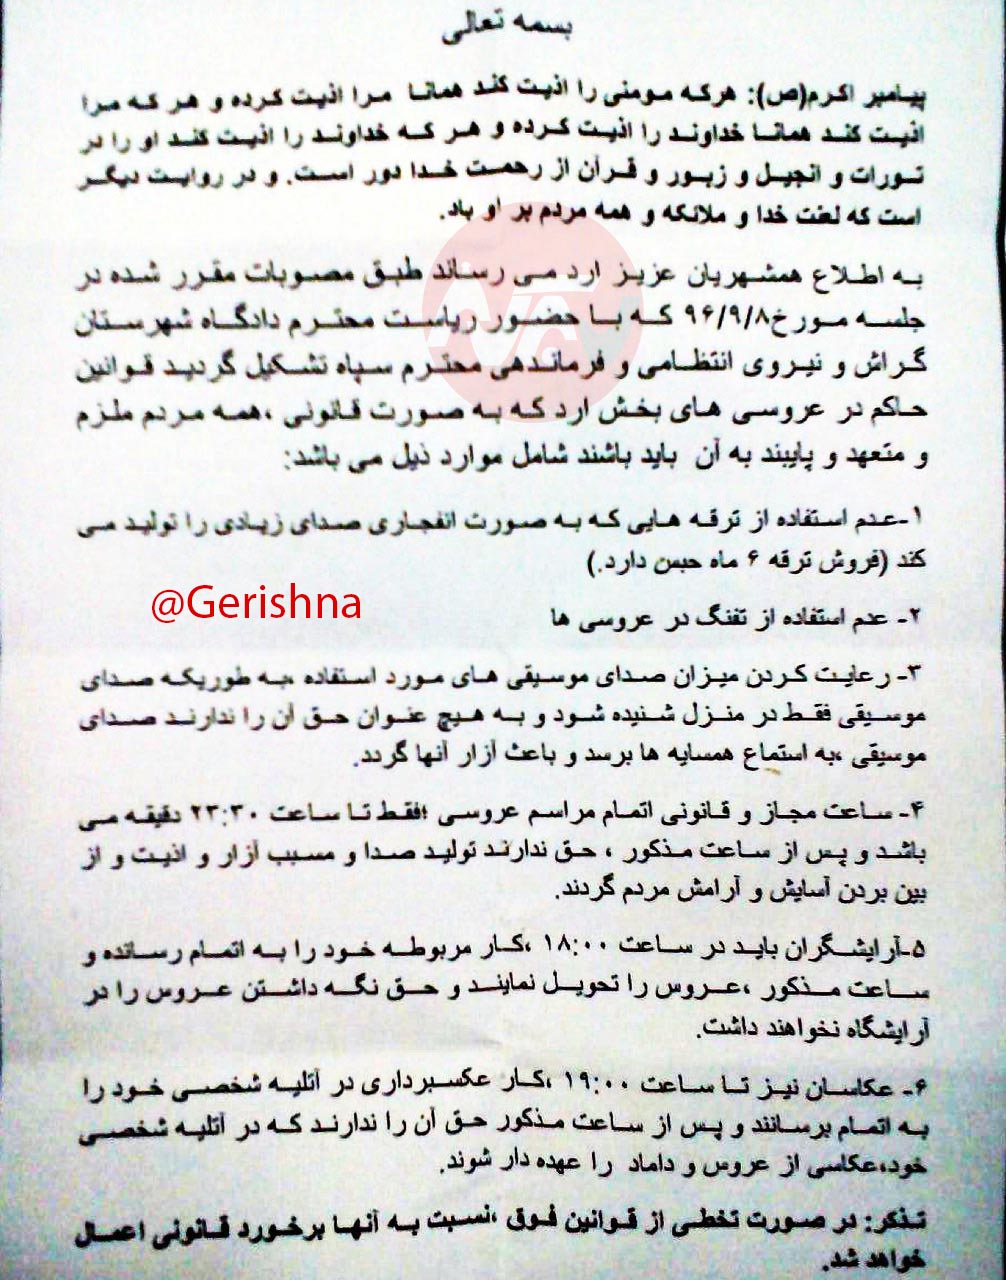 بسمه تعالی
پیامبر اکرم(ص): هرکه مومنی را اذیت کند همانا مرا اذیت کرده و هر که مرا
اذیت کند همانا خداوند را اذیت کرده و هر که خداوند را اذیت کند او را در
تورات و انجیل و زبور و قرآن از رحمت خدا دور است. و در روایت دیگر
است که لعنت خدا و ملائکه و همه مردم بر او باد.
به اطلاع همشهریان عزیز ارد می رساند طبق مصوبات مقرر شده در
جلسه مورخ ۹۶/۹/۸ که با حضور ریاست محترم دادگاه شهرستان
گراش و نیروی انتظامی و فرماندهی محترم سپاه تشکیل گردید قوانین
حاکم در عروسی های بخش ارد که به صورت قانونی ،همه مردم ملزم
و متعهد و پایبند به آن باید باشند شامل موارد ذیل می باشد:
۱-عدم استفاده از ترقه هایی که به صورت انفجاری صدای زیادی را تولید می
کند (فروش ترقه ۶ ماه حبس دارد.)
@Gerishna
۲- عدم استفاده از تفنگ در عروسی ها
۳- رعایت کردن میزان صدای موسیقی های مورد استفاده ،به طوریکه صدای
موسیقی فقط در منزل شنیده شود و به هیچ عنوان حق آن را ندارند صدای
موسیقی ،به استماع همسایه ها برسد و باعث آزار آنها گردد.
۴- ساعت مجاز و قانونی اتمام مراسم عروسی ؛فقط تا ساعت ۲۳:۳۰ دقیقه می
باشد و پس از ساعت مذکور ، حق ندارند تولید صدا و مسبب آزار و اذیت و از
بین بردن آسایش و آرامش مردم گردند.
۵-آرایشگران باید در ساعت ۱۸:۰۰ ،کار مربوطه خود را به اتمام رسانده و
ساعت مذکور ،عروس را تحویل نمایند و حق نگه داشتن عروس را در
آرایشگاه نخواهند داشت.
۶- عکاسان نیز تا ساعت ۱۹:۰۰ ،کار عکسبرداری در آتلیه شخصی خود را
به اتمام برسانند و پس از ساعت مذکور حق آن را ندارند که در آتلیه شخصی
خود،عکاسی از عروس و داماد را عهده دار شوند.
تذکر: در صورت تخطی از قوانین فوق ،نسبت به آنها برخورد قانونی اعمال
خواهد شد.